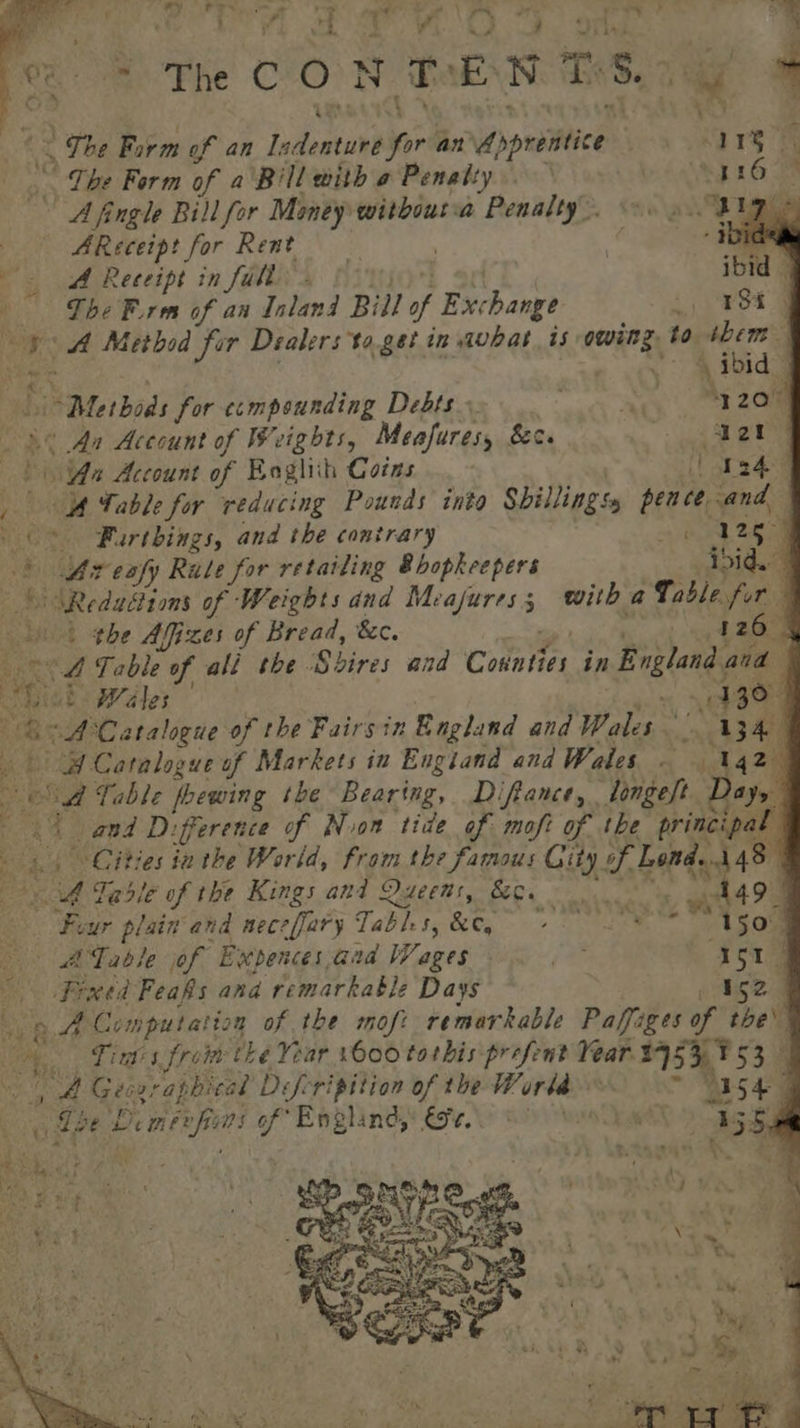 The CONTENTS.
The Form of an Indenture for an Apprentice 115
The Form of a Bill with a Penalty 116
A ſingle Bill for Money without a Penalty 117
A Receipt for Rent ibid
A Receipt in full ibid
The Form of an Inland Bill of Exchange 181
A Method for Dealers to get in what is owing to them
ibid
Methods for compounding Debts 120
An Account of Weights, Meaſures, &c. 121
An Account of Engliſh Coins 124
A Table for reducing Pounds into Shillings, pence and
Farthings, and the contrary 125
An eaſy Rule for retailing Shopkeepers ibid.
Reductions of Weights and Meaſures; with a Table for
the Aſſizes of Bread, &c. 126
A Table of all the Shires and Counties in England and
Wales 130
A Catalogue of the Fairs in England and Wales 134
A Catalogue of Markets in England and Wales 142
A Table ſhewing the Bearing, Diſtance, longeſt Day,
and Difference of Noon tide of moſt of the principal
Cities in the World, from the famous City of Lond. 148
A Table of the Kings and Queens, &c. 149
Four plain and neceſſary Tables, &c, 150
A Table of Expences and Wages 151
Fixed Feaſts and remarkable Days 152
A Computation of the moſt remarkable Paſſages of the
Times from the Year 1600 to this preſent Year 1753, 153
A Geographical Deſcripition of the World 154
The Dimenſions of England, &c. 155
THE